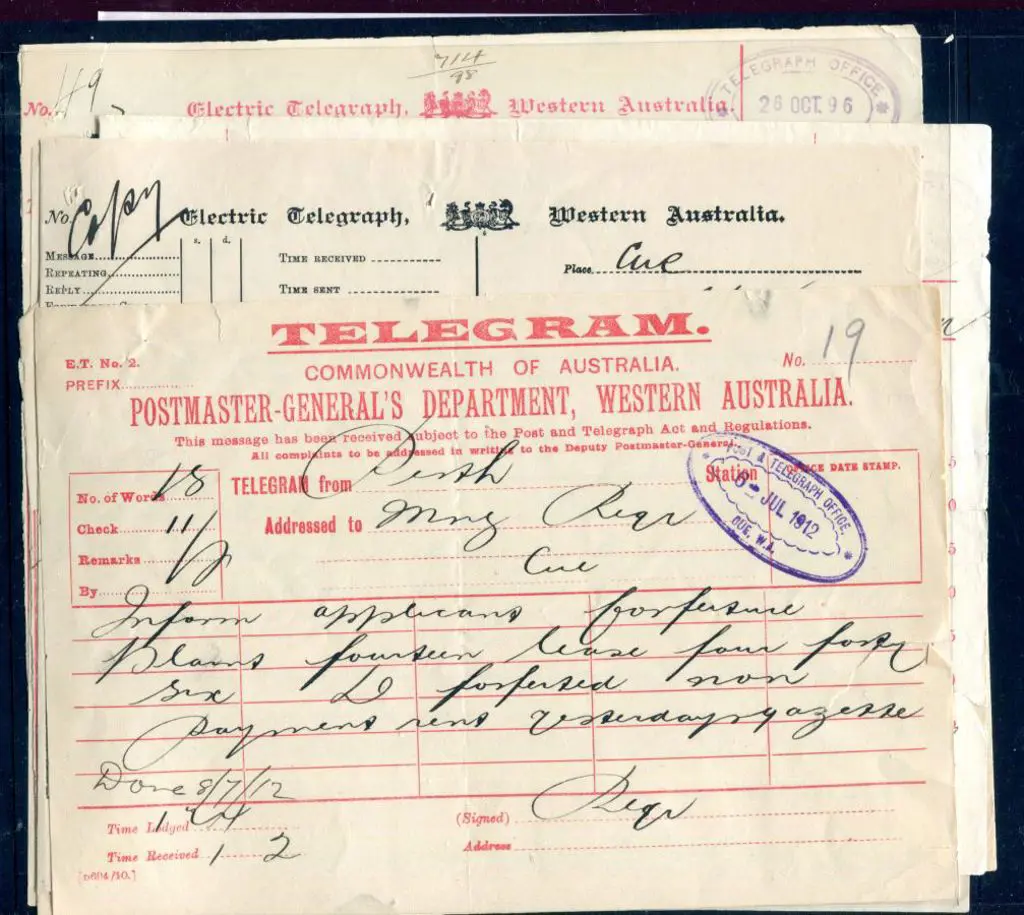 714
98
No. 49
Electric Telegraph, Western Australia.
TELEGRAPH OFFICE
26 OCT. 96
No. Copy
Electric Telegraph, Western Australia.
s. d.
MESSAGE
REPEATING
REPLY
TIME RECEIVED
TIME SENT
Place Cue
TELEGRAM.
E.T. No. 2.
PREFIX
COMMONWEALTH OF AUSTRALIA.
No. 19
POSTMASTER-GENERAL'S DEPARTMENT, WESTERN AUSTRALIA.
This message has been received subject to the Post and Telegraph Act and Regulations.
All complaints to be addressed in writing to the Deputy Postmaster-General.
No. of Words 18
Check 11/
Remarks
By
TELEGRAM from Perth Station
OFFICE DATE STAMP.
Addressed to Mng Regr
Cue
POST & TELEGRAPH OFFICE.
6 - JUL 1912
CUE, W.A.
Inform applicant forfeiture
plaint fourteen lease four forty
six D forfeited non
payment rent yesterdays gazette
Done 8/7/12
Time Lodged
(Signed) Regr
Time Received 1 2
Address
[D694/10.]